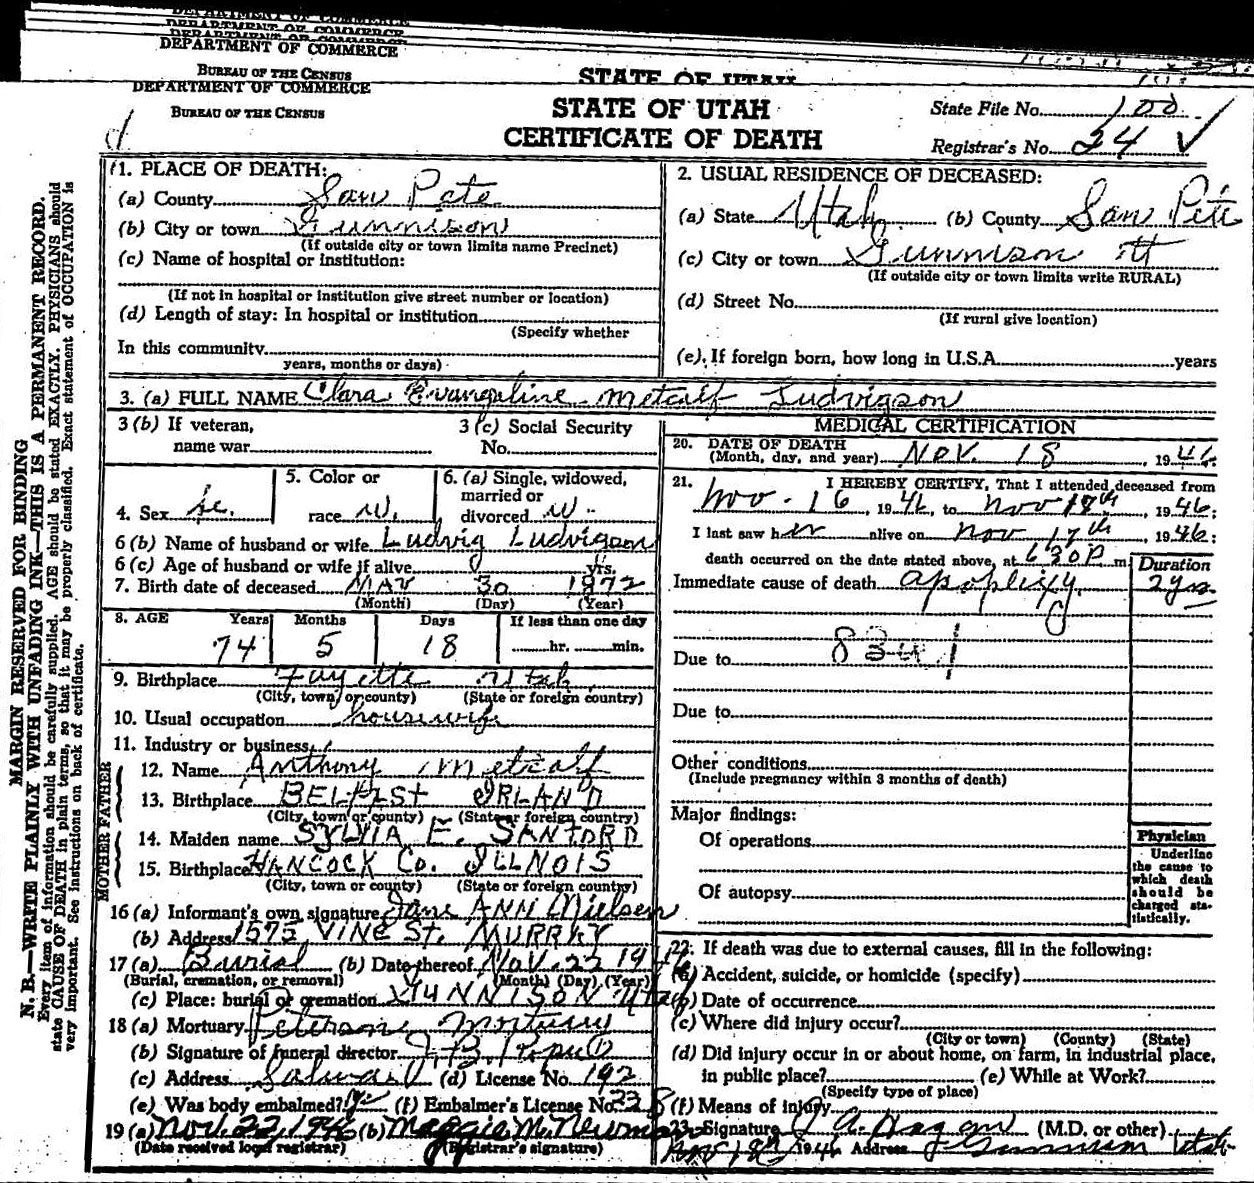 DEPARTMENT OF COMMERCE
DEPARTMENT OF COMMERCE
DEPARTMENT OF COMMERCE
DEPARTMENT OF COMMERCE
BUREAU OF THE CENSUS
STATE OF UTAH
DEPARTMENT OF COMMERCE
BUREAU OF THE CENSUS
STATE OF UTAH
CERTIFICATE OF DEATH
State File No. 100
Registrar's No. 24
MARGIN RESERVED FOR BINDING
N. B.—WRITE PLAINLY WITH UNFADING INK—THIS IS A PERMANENT RECORD.
Every item of information should be carefully supplied. AGE should be stated EXACTLY. PHYSICIANS should
state CAUSE OF DEATH in plain terms, so that it may be properly classified. Exact statement of OCCUPATION is
very important. See instructions on back of certificate.
1. PLACE OF DEATH:
(a) County San Pete
(b) City or town Gunnison
(If outside city or town limits name Precinct)
(c) Name of hospital or institution:
(If not in hospital or institution give street number or location)
(d) Length of stay: In hospital or institution
(Specify whether
In this community
years, months or days)
2. USUAL RESIDENCE OF DECEASED:
(a) State Utah (b) County San Pete
(c) City or town Gunnison
(If outside city or town limits write RURAL)
(d) Street No.
(If rural give location)
(e) If foreign born, how long in U.S.A. years
3. (a) FULL NAME Clara Evangeline Metcalf Ludvigson
3 (b) If veteran, 3 (c) Social Security
name war No.
4. Sex fe. 5. Color or race W. 6. (a) Single, widowed, married or divorced W.
6 (b) Name of husband or wife Ludvig Ludvigson
6 (c) Age of husband or wife if alive yrs.
7. Birth date of deceased MAY 30 1872
(Month) (Day) (Year)
8. AGE Years Months Days If less than one day
74 5 18 hr. min.
9. Birthplace Fayette Utah
(City, town, or county) (State or foreign country)
10. Usual occupation housewife
11. Industry or business
FATHER
12. Name Anthony Metcalf
13. Birthplace BELFAST IRLAND
(City, town or county) (State or foreign country)
MOTHER
14. Maiden name SYLVIA E. SANFORD
15. Birthplace HANCOCK Co. ILLNOIS
(City, town or county) (State or foreign country)
16 (a) Informant's own signature Jane ANN Nielsen
(b) Address 1575 VINE St. MURRAY
17 (a) Burial (b) Date thereof Nov. 22 1946
(Burial, cremation, or removal) (Month) (Day) (Year)
(c) Place: burial or cremation GUNNISON Utah
18 (a) Mortuary Petersons Mortuary
(b) Signature of funeral director
(c) Address (d) License No. 192
(e) Was body embalmed? (f) Embalmer's License No.
19 (a) Nov. 22, 1946 (b) Maggie M. Newman
(Date received local registrar) (Registrar's signature)
MEDICAL CERTIFICATION
20. DATE OF DEATH
(Month, day, and year) Nov. 18, 1946
21. I HEREBY CERTIFY, That I attended deceased from
Nov - 16, 1946, to Nov 18th, 1946;
I last saw her alive on Nov 17th, 1946;
death occurred on the date stated above, at 630P m
Duration
Immediate cause of death apoplixy 2 yrs
Due to
Due to
Other conditions
(Include pregnancy within 3 months of death)
Major findings:
Of operations
Of autopsy
Physician
Underline
the cause to
which death
should be
charged sta-
tistically.
22. If death was due to external causes, fill in the following:
(a) Accident, suicide, or homicide (specify)
(b) Date of occurrence
(c) Where did injury occur?
(City or town) (County) (State)
(d) Did injury occur in or about home, on farm, in industrial place,
in public place? (e) While at Work?
(Specify type of place)
(f) Means of injury
23. Signature A. Hagan (M.D. or other)
Nov 18th 1946 Address Gunnison Utah